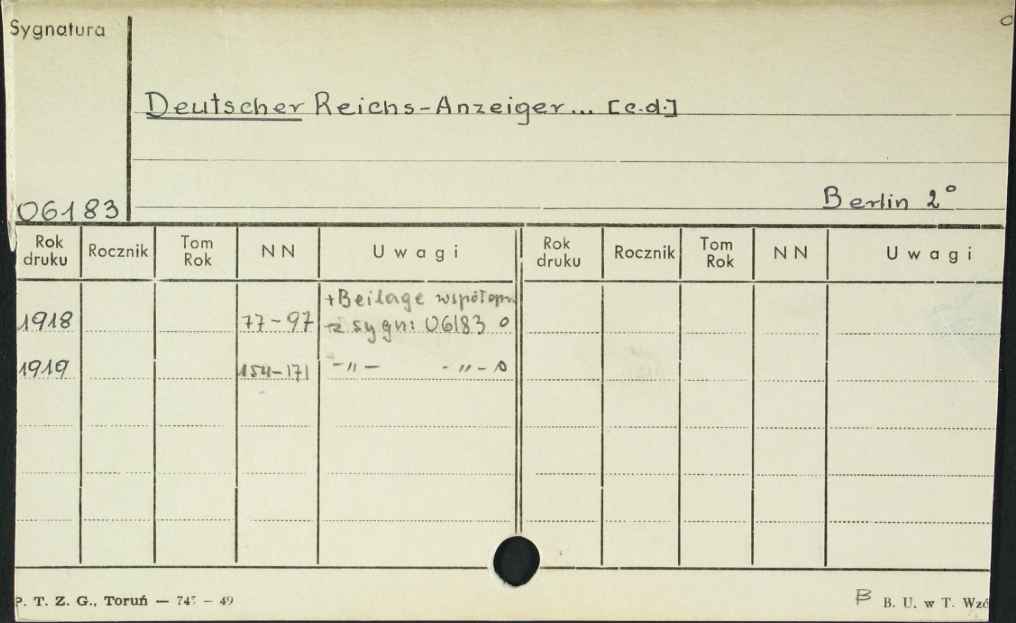 Sygnatura
Deutscher Reichs-Anzeiger... [c.d.]
06183
Berlin 2°
Rok druku Rocznik Tom Rok NN Uwagi Rok druku Rocznik Tom Rok NN Uwagi
+Beilage współopr
1918 77-97 z sygn: 06183
1919 154-171 -"- -"-
P. T. Z. G., Toruń — 745 — 49
B B. U. w T. Wzó